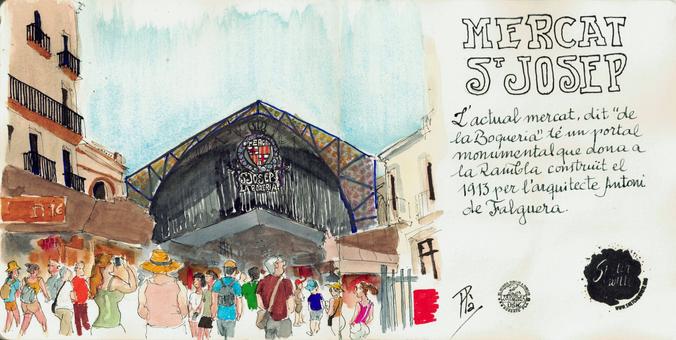 MERCAT
ST JOSEP
L'actual mercat, dit "de
la Boqueria" té un portal
monumental que dona a
la Rambla construït el
1913 per l'arquitecte Antoni
de Falguera.
MERCAT
ST JOSEP
LA BOQUERIA
Plà